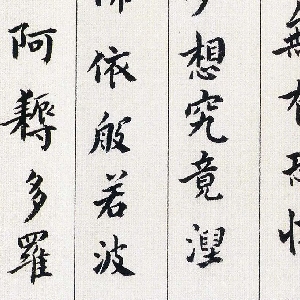 無有恐怖
想究竟涅
依般若波
阿耨多羅